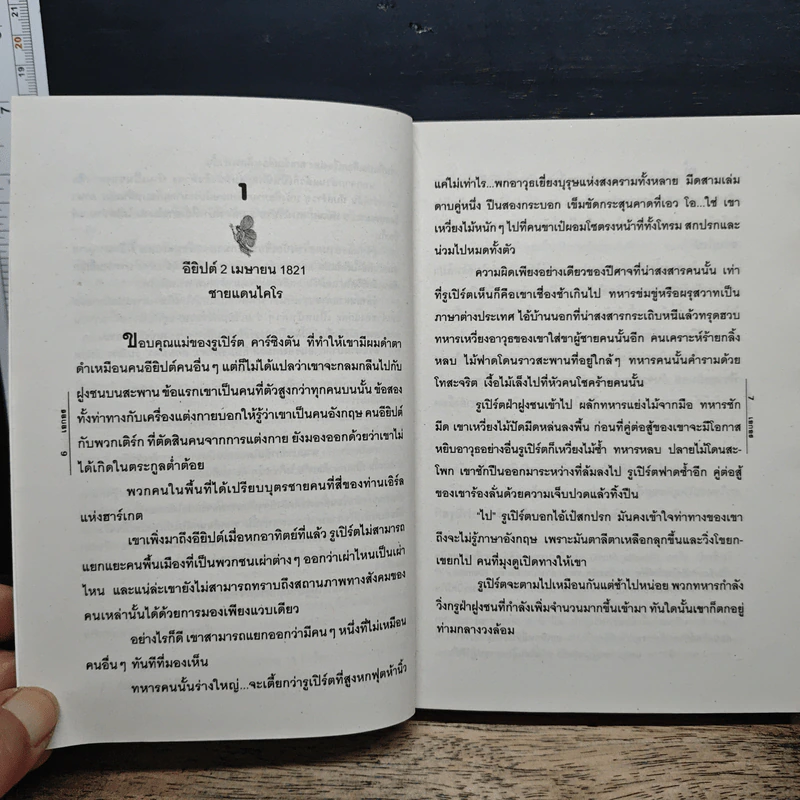 ๑
อียิปต์ 2 เมษายน 1821
ชายแดนไคโร
ขอบคุณแม่ของรูเปิร์ต คาร์ซิงตัน ที่ทำให้เขามีผมดำตา
ดำเหมือนคนอียิปต์คนอื่นๆ แต่ก็ไม่ได้แปลว่าเขาจะกลมกลืนไปกับ
ฝูงชนบนสะพาน ข้อแรกเขาเป็นคนที่ตัวสูงกว่าทุกคนบนนั้น ข้อสอง
ทั้งท่าทางกับเครื่องแต่งกายบอกให้รู้ว่าเขาเป็นคนอังกฤษ คนอียิปต์
กับพวกเติร์ก ที่ตัดสินคนจากการแต่งกาย ยังมองออกด้วยว่าเขาไม่
ได้เกิดในตระกูลต่ำต้อย
พวกคนในพื้นที่ได้เปรียบบุตรชายคนที่สี่ของท่านเอิร์ล
แห่งฮาร์เกต
เขาเพิ่งมาถึงอียิปต์เมื่อหกอาทิตย์ที่แล้ว รูเปิร์ตไม่สามารถ
แยกแยะคนพื้นเมืองที่เป็นพวกชนเผ่าต่างๆ ออกว่าเผ่าไหนเป็นเผ่า
ไหน และแน่ล่ะเขายังไม่สามารถทราบถึงสถานภาพทางสังคมของ
คนเหล่านั้นได้ด้วยการมองเพียงแวบเดียว
อย่างไรก็ดี เขาสามารถแยกออกว่ามีคนๆ หนึ่งที่ไม่เหมือน
คนอื่นๆ ทันทีที่มองเห็น
ทหารคนนั้นร่างใหญ่...จะเตี้ยกว่ารูเปิร์ตที่สูงหกฟุตห้านิ้ว
6
แค่ไม่เท่าไร...พกอาวุธเยี่ยงบุรุษแห่งสงครามทั้งหลาย มีดสามเล่ม
ดาบคู่หนึ่ง ปืนสองกระบอก เข็มขัดกระสุนคาดที่เอว โอ...ใช่ เขา
เหวี่ยงไม้หนักๆ ไปที่คนขาเป๋ผอมโซตรงหน้าที่ทั้งโทรม สกปรกและ
น่วมไปหมดทั้งตัว
ความผิดเพียงอย่างเดียวของปีศาจที่น่าสงสารคนนั้น เท่า
ที่รูเปิร์ตเห็นก็คือเขาเชื่องช้าเกินไป ทหารข่มขู่หรือผรุสวาทเป็น
ภาษาต่างประเทศ ไอ้บ้านนอกที่น่าสงสารกระเถิบหนีแล้วทรุดฮวบ
ทหารเหวี่ยงอาวุธของเขาใส่ขาผู้ชายคนนั้นอีก คนเคราะห์ร้ายกลิ้ง
หลบ ไม้ฟาดโดนราวสะพานที่อยู่ใกล้ๆ ทหารคนนั้นคำรามด้วย
โทสะจริต เงื้อไม้เล็งไปที่หัวคนโชคร้ายคนนั้น
รูเปิร์ตฝ่าฝูงชนเข้าไป ผลักทหารแย่งไม้จากมือ ทหารชัก
มีด เขาเหวี่ยงไม้ปัดมีดหล่นลงพื้น ก่อนที่คู่ต่อสู้ของเขาจะมีโอกาส
หยิบอาวุธอย่างอื่นรูเปิร์ตก็เหวี่ยงไม้ซ้ำ ทหารหลบ ปลายไม้โดนสะ-
โพก เขาชักปืนออกมาระหว่างที่ล้มลงไป รูเปิร์ตฟาดซ้ำอีก คู่ต่อสู้
ของเขาร้องลั่นด้วยความเจ็บปวดแล้วทิ้งปืน
"ไป" รูเปิร์ตบอกไอ้เป๋สกปรก มันคงเข้าใจท่าทางของเขา
ถึงจะไม่รู้ภาษาอังกฤษ เพราะมันตาลีตาเหลือกลุกขึ้นและวิ่งโขยก-
เขยกไป คนที่มุงดูเปิดทางให้เขา
รูเปิร์ตจะตามไปเหมือนกันแต่ช้าไปหน่อย พวกทหารกำลัง
วิ่งกรูฝ่าฝูงชนที่กำลังเพิ่มจำนวนมากขึ้นเข้ามา ทันใดนั้นเขาก็ตกอยู่
ท่ามกลางวงล้อม
7